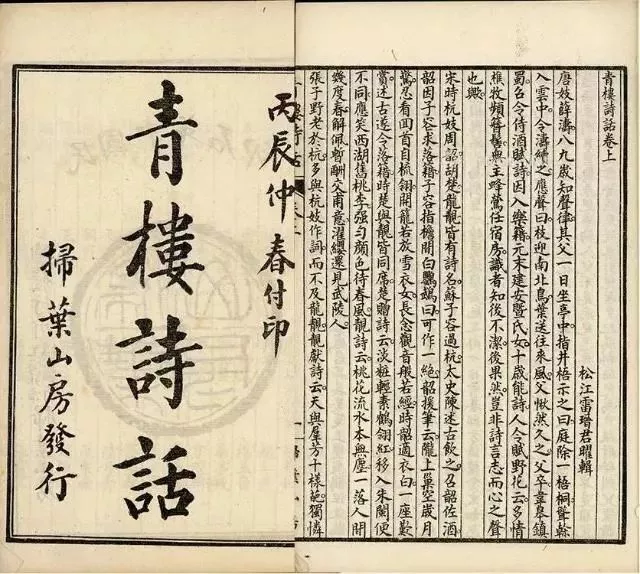 青樓詩話卷上
松江雷瑨君曜輯
唐妓薛濤八九歲知聲律其父一日坐亭中指井梧示之曰庭除一梧桐聳幹
入雲中令濤續之應聲曰枝迎南北鳥葉送往來風父愀然久之父卒韋皋鎮
蜀召令侍酒賦詩因入樂籍元末建安暨氏女十歲能詩人令賦野花云多情
樵牧頻簪髻無主蜂鶯任宿房識者知後不潔後果然豈非詩言志而心之聲
也歟
宋時杭妓周韶胡楚龍靚皆有詩名蘇子容過杭太史陳述古飲之召韶佐酒
韶因子容求落籍子容指檐間白鸚鵡曰可作一絕韶援筆云隴上巢空歲月
驚忍看回首自梳翎開籠若放雪衣女長念觀音般若經時韶適衣白一座歎
賞述古遂令落籍時楚與靚皆同席楚贈詩云淡粧輕素鶴翎紅移入朱闌便
不同應笑西湖舊桃李強勻顏色待春風靚詩云桃花流水本無塵一落人間
幾度春解佩暫酬交甫意濯纓還見武陵人
張子野老於杭多與杭妓作詞而不及龍靚靚獻詩云天與羣芳十樣葩獨憐
丙辰仲春付印
青樓詩話
掃葉山房發行